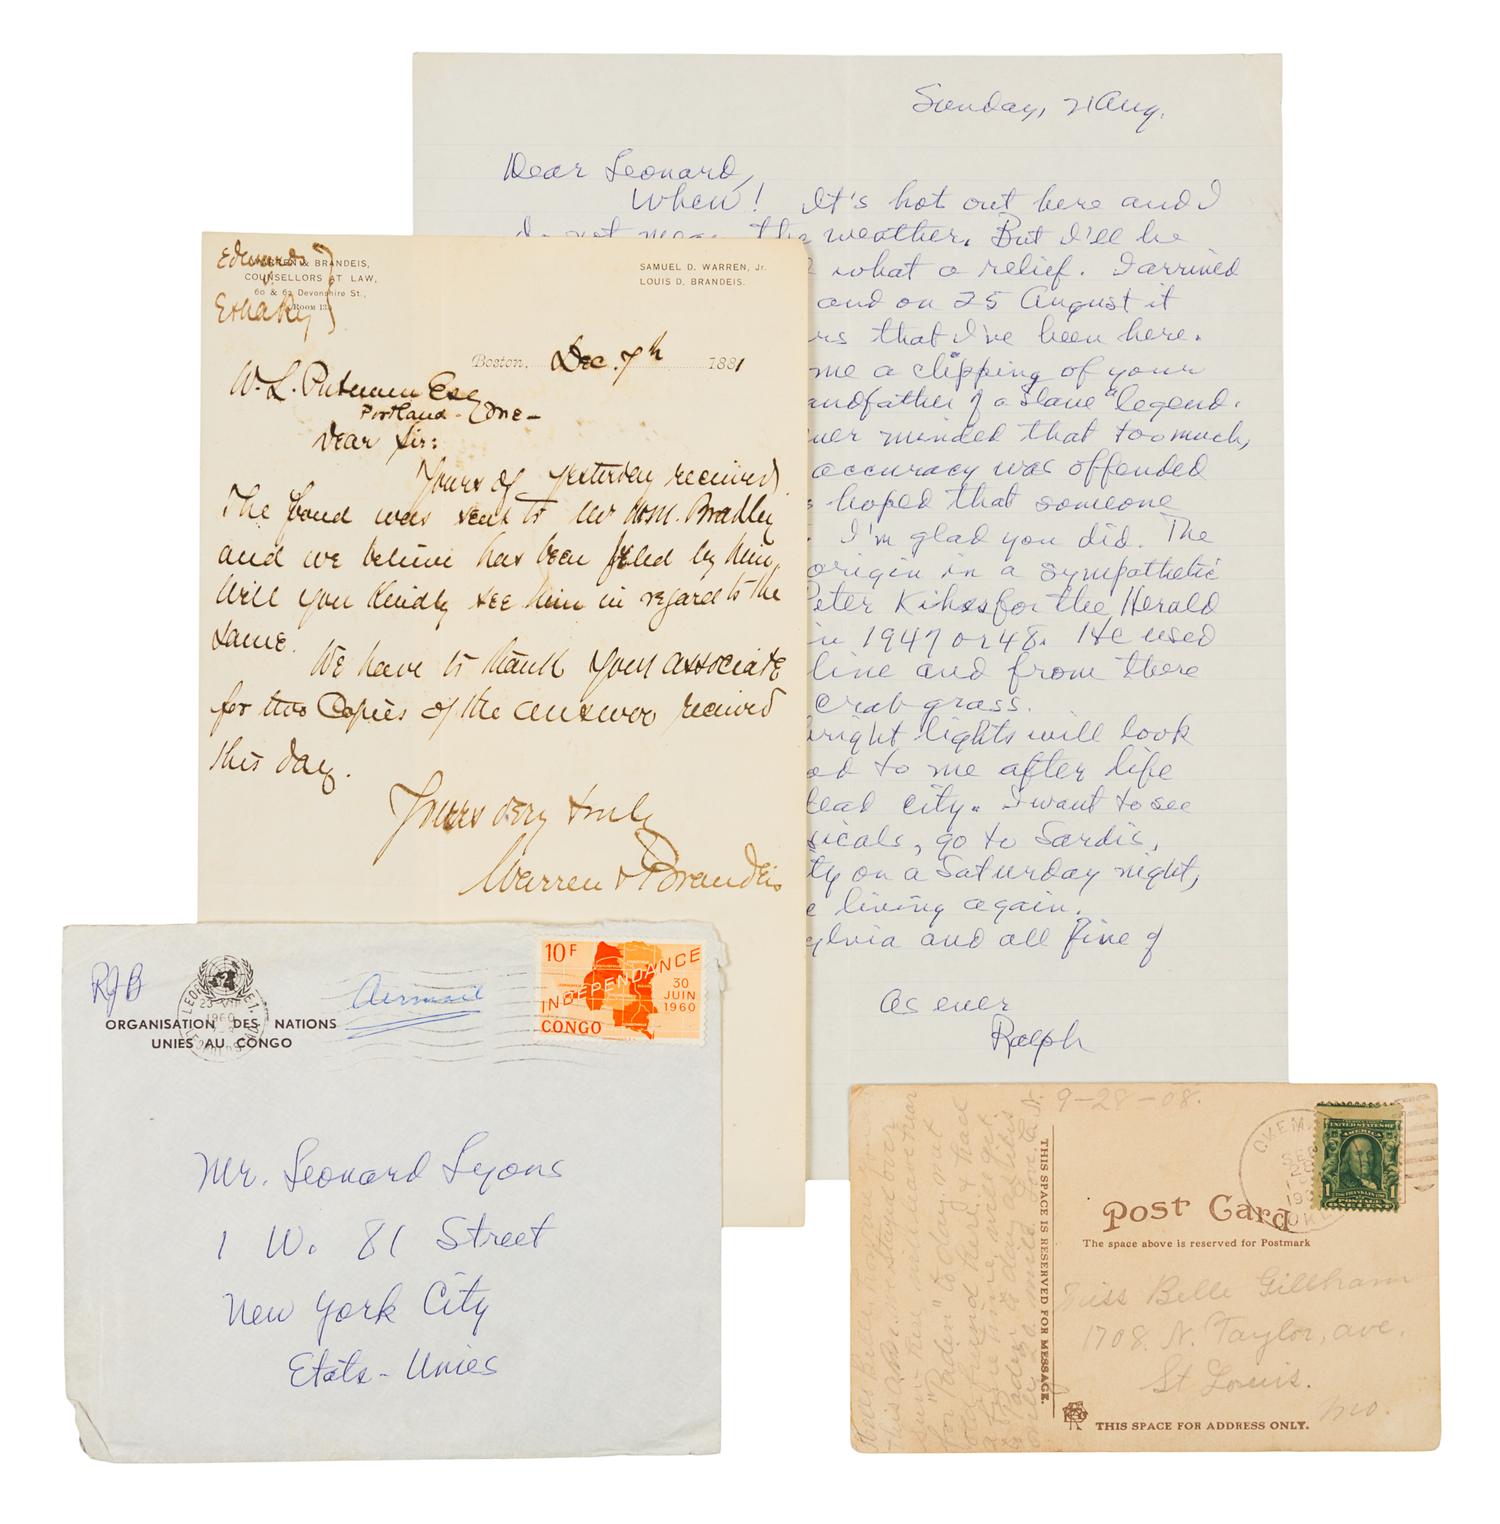 Sunday, 21 Aug.
Dear Leonard,
When! It's hot out here and I
do not mean the weather. But I'll be
what a relief. I arrived
and on 25 August it
rs that I've been here.
me a clipping of your
andfather of a slave "legend.
ver minded that too much,
accuracy was offended
hoped that someone
I'm glad you did. The
origin in a sympathetic
Peter Kihss for the Herald
in 1947 or 48. He used
line and from there
crab grass.
bright lights will look
od to me after life
dead city. I want to see
sicals, go to Sardis,
ty on a Saturday night,
e living again.
ylvia and all fine of
As ever
Ralph
Edwards
v.
WARREN & BRANDEIS,
COUNSELLORS AT LAW,
60 & 62 Devonshire St.,
Room 13.
SAMUEL D. WARREN, Jr.
LOUIS D. BRANDEIS.
Boston, Dec. 7th 1881
W. L. Putnam Esq
Portland - Me -
Dear Sir:
Yours of yesterday received.
The bond was sent to Mr Wm. Bradley
and we believe has been filed by him.
Will you kindly see him in regard to the
same.
We have to thank your associate
for two Copies of the answer received
this day.
Yours very truly
Warren & Brandeis
RJB
Airmail
ORGANISATION DES NATIONS
UNIES AU CONGO
1960
10F
INDEPENDANCE
30
JUIN
1960
CONGO
Mr. Leonard Lyons
1 W. 81 Street
New York City
Etats-Unies
9-28-08.
OKEM
SEP
UNITED STATES OF
AMERICA
1
1
POSTAGE
Post Card
The space above is reserved for Postmark
THIS SPACE IS RESERVED FOR MESSAGE.
Miss Belle Gillham
1708 N. Taylor, ave.
St Louis.
Mo.
THIS SPACE FOR ADDRESS ONLY.